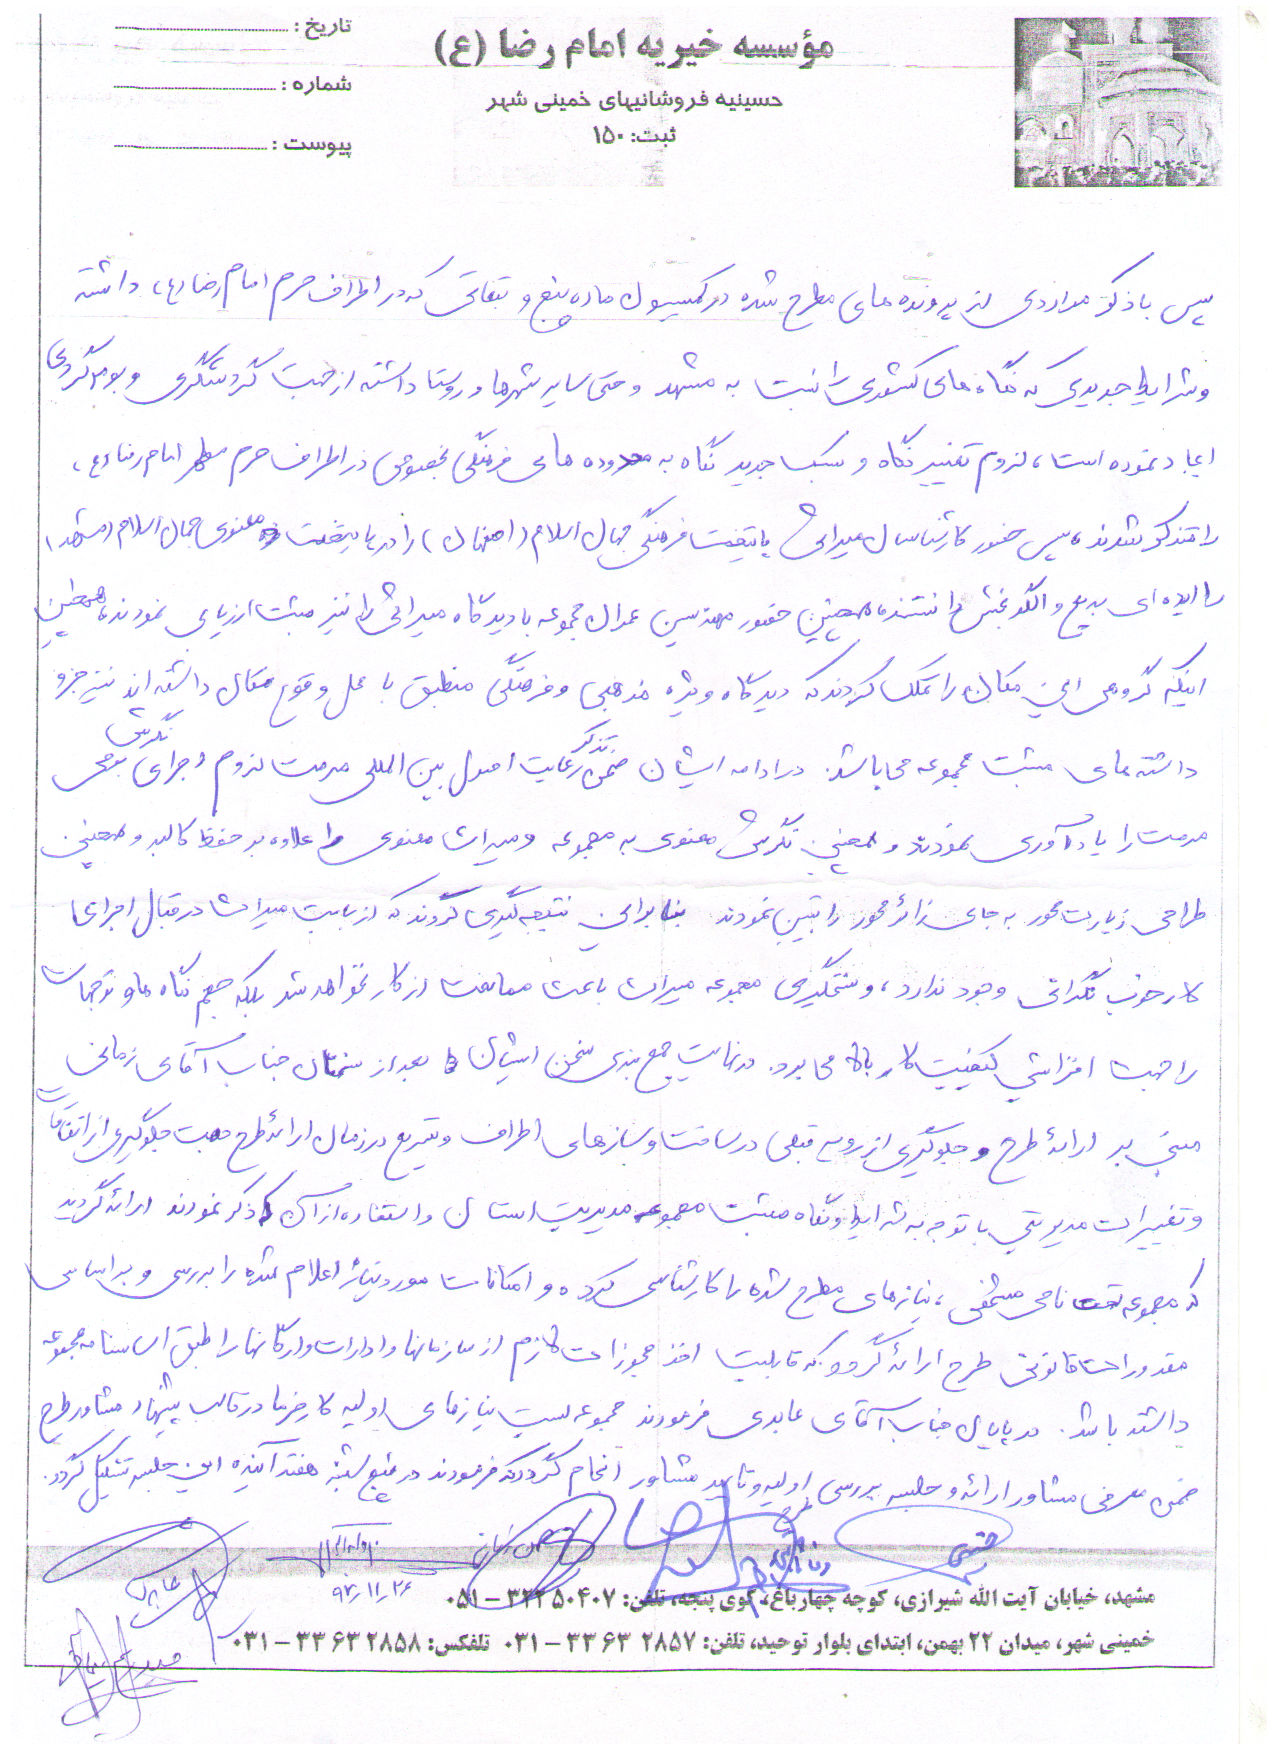 مؤسسه خیریه امام رضا (ع)
حسینیه فروشانیهای خمینی شهر
ثبت: ۱۵۰
تاریخ :
شماره :
پیوست :
سپس با ذکر مواردی از پرونده های مطرح شده در کمیسیون ماده پنج و که در اطراف حرم امام رضا (ع) داشته
و شرایط جدیدی که نگاه های کشوری را نسبت به مشهد و حتی سایر شهرها و روستا داشته از جهت گردشگری و بوم گردی
ایجاد نموده است، لزوم تغییر نگاه و سبک جدید نگاه به محدوده های فرهنگی بخصوص در اطراف حرم مطهر امام رضا (ع)
را متذکر شدند، سپس حضور کارشناسان میراثی پایتخت فرهنگی جهان اسلام (اصفهان) را در پایتخت معنوی جهان اسلام (مشهد)
را ایده ای بدیع و الگو بخش دانستند، همچنین حضور مهندسین عمران مجموعه با دیدگاه میراثی را نیز مثبت ارزیابی نمودند، همچنین
اینکه گروهی این مکان را تملک کردند که دیدگاه ویژه مذهبی و فرهنگی منطبق با محل وقوع مکان داشته اند نیز جزو
داشته های مثبت مجموعه می باشد. در ادامه ایشان ضمن تذکر رعایت اصول بین المللی مرمت لزوم اجرای نگرش بومی
مرمت را یادآوری نمودند و همچنین نگرش معنوی به مجموعه و میراث معنوی را علاوه بر حفظ کالبد و همچنین
طراحی زیارت محور به جای زائر محور را تبیین نمودند بنابراین نتیجه گیری کردند که از بابت میراث در قبال اجرای
کار خوب نگرانی وجود ندارد، و سختگیری مجموعه میراث باعث ممانعت از کار نخواهد شد بلکه جمیع نگاه ها و توجهات
را جهت افزایش کیفیت کار بالا می برد. در نهایت جمع بندی سخن ایشان بعد از سخنان جناب آقای زمانی
مبنی بر ارائه طرح و جلوگیری از رویه قبلی در ساخت و سازهای اطراف و تسریع در زمان ارائه طرح جهت جلوگیری از اتفاقات
و تغییرات مدیریتی با توجه به شرایط و نگاه مثبت مجموعه مدیریت استان و استفاده از آن ذکر نمودند ارائه گردید
که مجموعه تحت نامی مشخص، نیازهای مطرح شده را کارشناسی کرده و امکانات مورد نیاز اعلام شده را بررسی و بر اساس
مقدورات قانونی طرح ارائه گردد که قابلیت اخذ مجوزات لازم از سازمانها و ادارات و ارگانها را طبق اساسنامه مجموعه
داشته باشد. در پایان جناب آقای عابدی فرمودند مجموعه لیست نیازهای اولیه کارفرما در قالب پیشنهاد مشاور طرح
ضمن معرفی مشاور ارائه و جلسه بررسی اولیه و تایید مشاور طرح انجام گردد که فرمودند در پنج شنبه هفته آینده این جلسه تشکیل گردد.
۹۴،۱۱،۲۶
مشهد، خیابان آیت الله شیرازی، کوچه چهارباغ، کوی پنجه، تلفن: ۳۲۲۵۰۴۰۷ – ۰۵۱
خمینی شهر، میدان ۲۲ بهمن، ابتدای بلوار توحید، تلفن: ۳۳۶۳۲۸۵۷ – ۰۳۱ تلفکس: ۳۳۶۳۲۸۵۸ – ۰۳۱